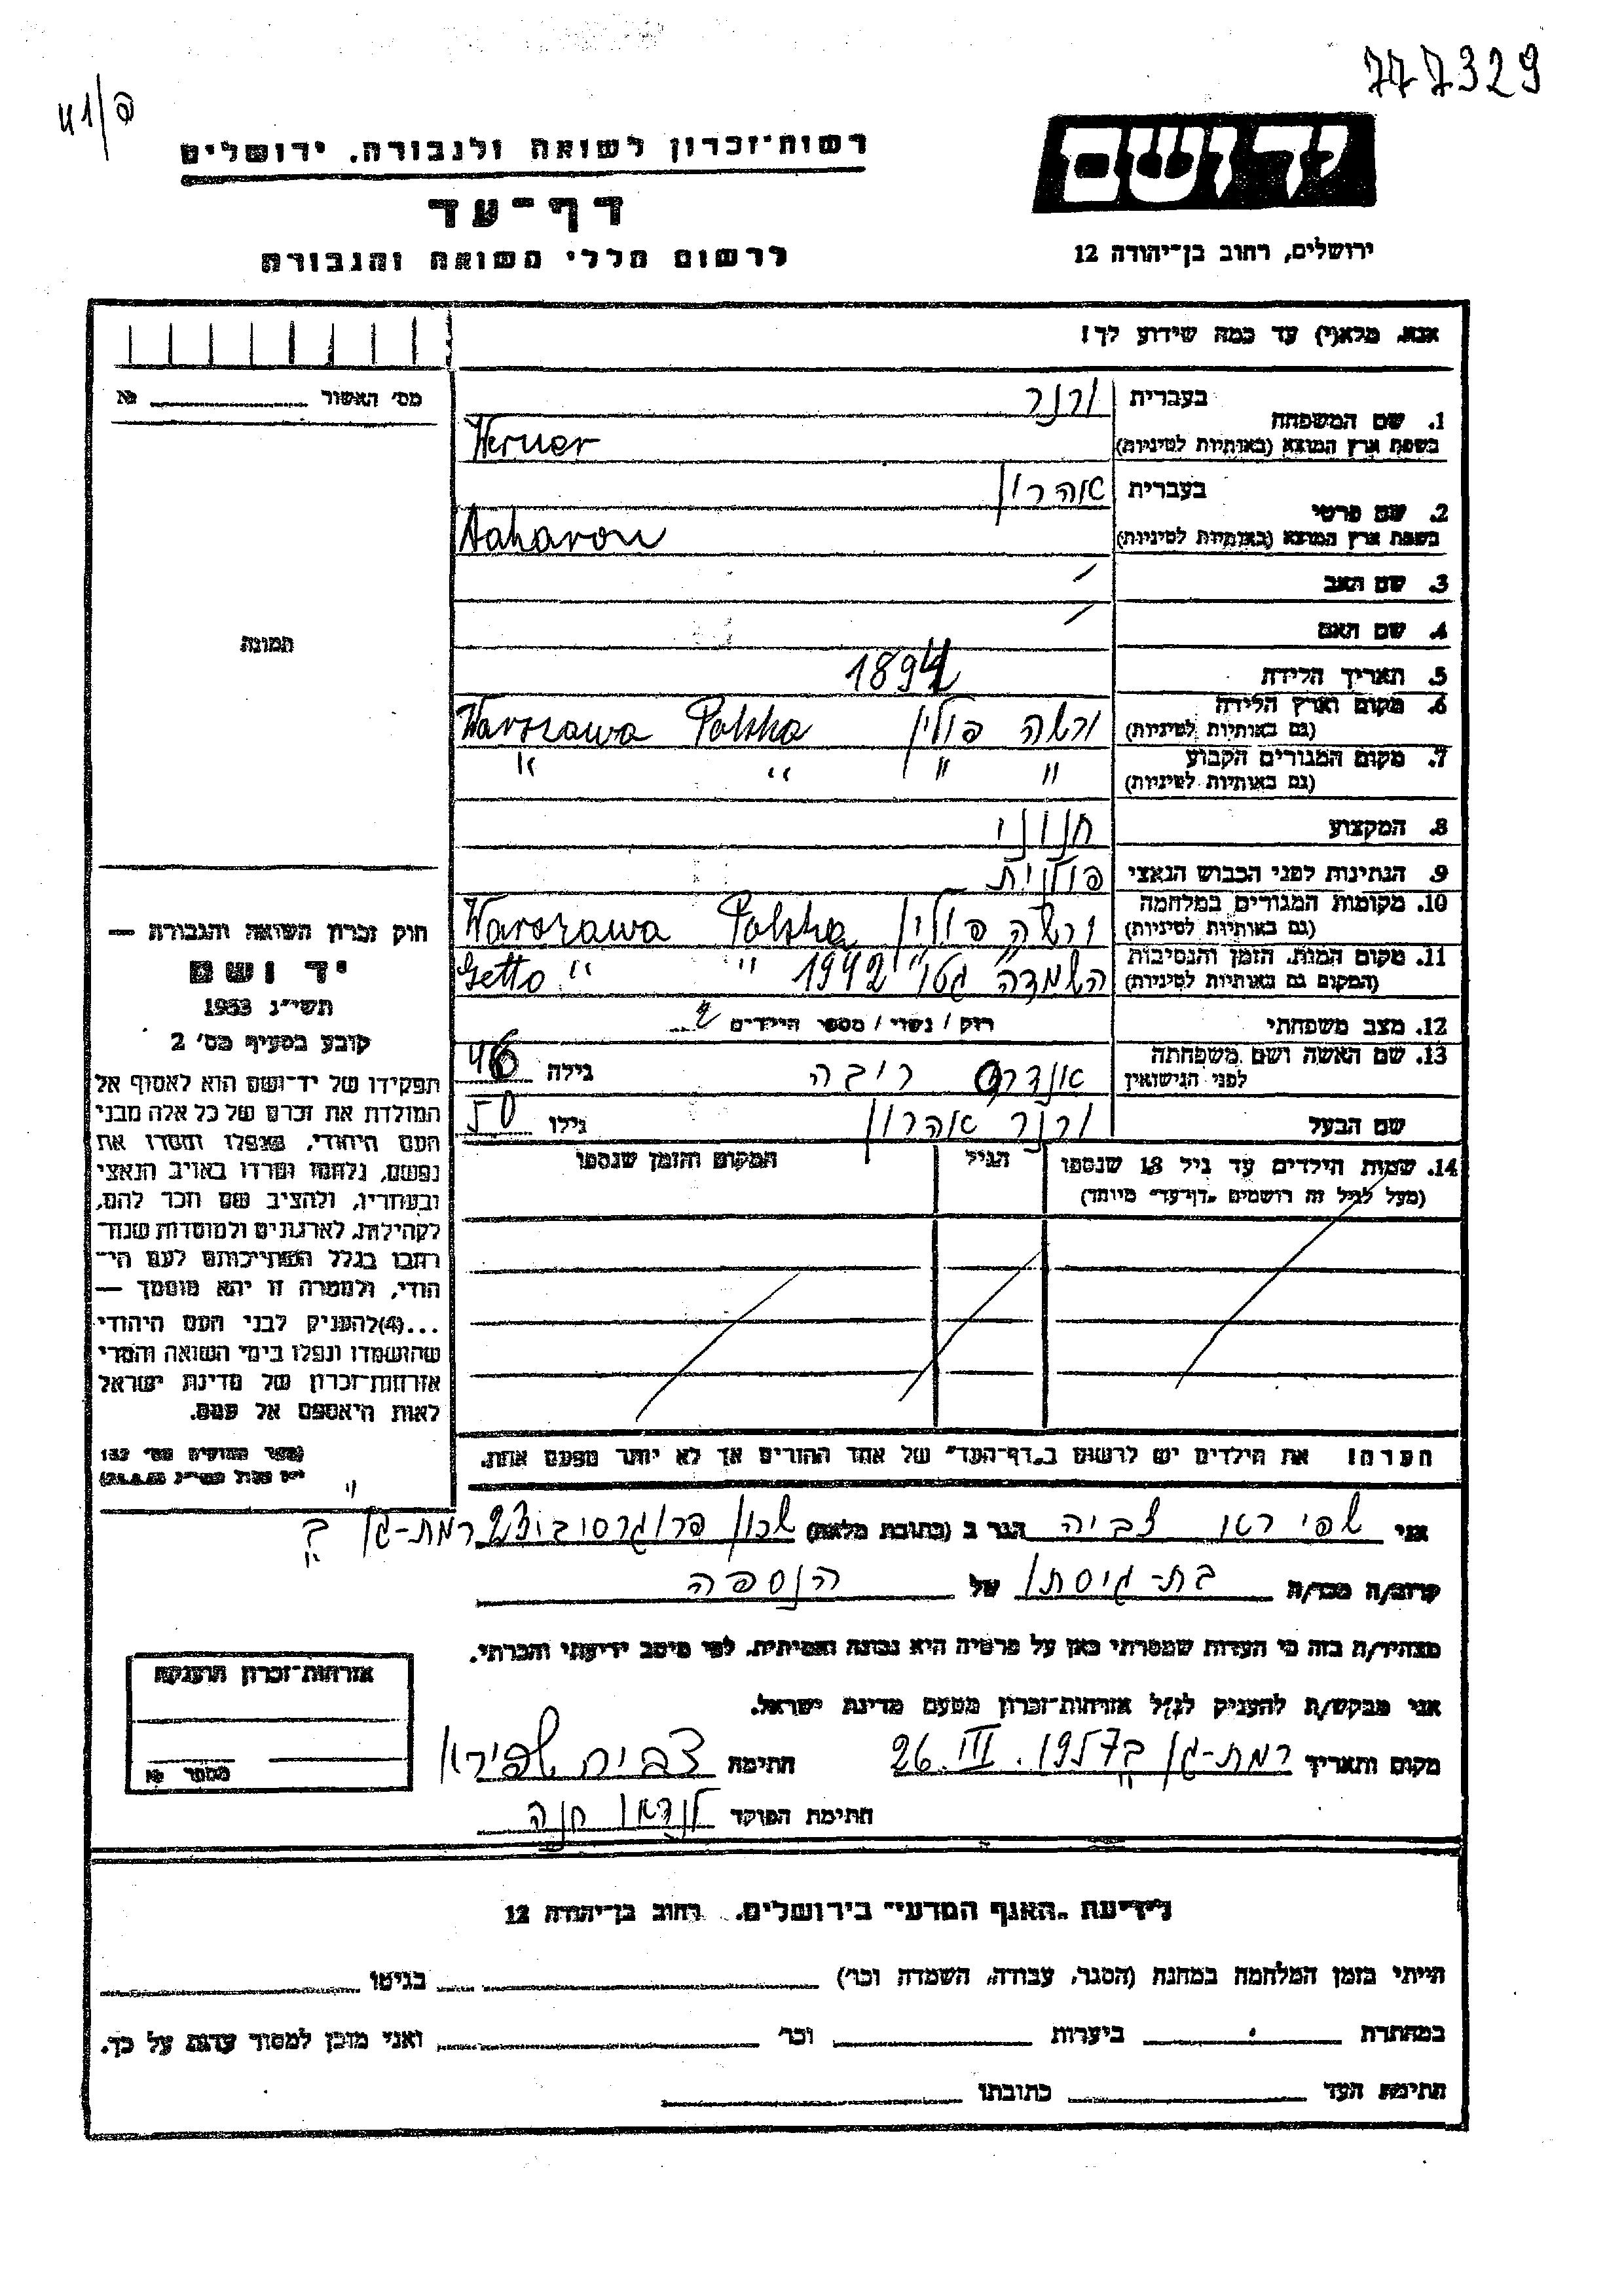 777329
רשות־זכרון לשואה ולגבורה. ירושלים
דף־עד
לרשום חללי השואה והגבורה
יד ושם
ירושלים, רחוב בן־יהודה 12
אנא, מלא(י) עד כמה שידוע לך!
מס׳ האשור № 
1. שם המשפחה בעברית ורנר
בשפת ארץ המוצא (באותיות לטיניות) Werner
2. שם פרטי בעברית אהרון
בשפת ארץ המוצא (באותיות לטיניות) Aaharon
3. שם האב /
4. שם האם /
תמונה
5. תאריך הלידה
6. מקום וארץ הלידה (גם באותיות לטיניות) ורשה פולין Warszawa Polska
7. מקום המגורים הקבוע (גם באותיות לטיניות) " " " "
8. המקצוע חנוני
9. הנתינות לפני הכבוש הנאצי פולנית
10. מקומות המגורים במלחמה (גם באותיות לטיניות) ורשה פולין Warszawa Polska
11. מקום המות, הזמן והנסיבות (המקום גם באותיות לטיניות) השמדה גטו " 1942 Getto " "
12. מצב משפחתי רוק / נשוי / מספר הילדים 2
13. שם האשה ושם משפחתה לפני הנישואין ריבה גילה
שם הבעל ורנר אהרון גילו 50
14. שמות הילדים עד גיל 18 שנספו הגיל המקום והזמן שנספו
(מעל לגיל זה רושמים "דף־עד" מיוחד)
חוק זכרון השואה והגבורה —
יד ושם
תשי״ג 1953
קובע בסעיף מס׳ 2
תפקידו של יד־ושם הוא לאסוף אל
המולדת את זכרם של כל אלה מבני
העם היהודי, שנפלו ומסרו את
נפשם, נלחמו ומרדו באויב הנאצי
ובעוזריו, ולהציב שם וזכר להם,
לקהילות, לארגונים ולמוסדות שנח־
רבו בגלל השתייכותם לעם הי־
הודי, ולמטרה זו יהא מוסמך —
...(4) להעניק לבני העם היהודי
שהושמדו ונפלו בימי השואה והמרי
אזרחות־זכרון של מדינת ישראל
לאות היאספם אל עמם.
הערה! את הילדים יש לרשום ב"דף־העד" של אחד ההורים אך לא יותר מפעם אחת.
אני שפירא צביה הגר ב (כתובת מלאה) שכון פרוגרסוב 23 רמת-גן
קרוב/ה מכר/ה בת-גיסתו של הנספה
מצהיר/ה בזה כי העדות שמסרתי כאן על פרטיה היא נכונה ואמיתית, לפי מיטב ידיעתי והכרתי.
אני מבקש/ת להעניק לנ"ל אזרחות־זכרון מטעם מדינת ישראל.
מקום ותאריך רמת-גן 26.III.1957 חתימה צביה שפירא
חתימת הפוקד לנדאו חנה
אזרחות־זכרון הוענקה
מספר №
לידיעת "האגף המדעי" בירושלים, רחוב בן־יהודה 12
הייתי בזמן המלחמה במחנה (הסגר, עבודה, השמדה וכו׳) בגיטו
במחתרת ביערות וכו׳ ואני מוכן למסור עדות על כך.
חתימת העד כתובתו